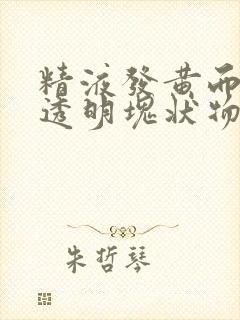 精液發黃而
透明塊狀物
朱哲琴